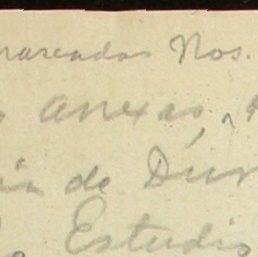 marcados Nos.
anexas,
de Dur
Estudio